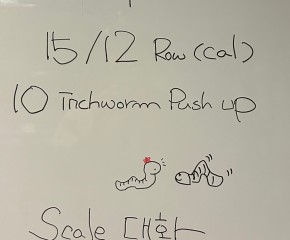 15/12 Row (cal)
10 Inchworm Push up
Scale 대회